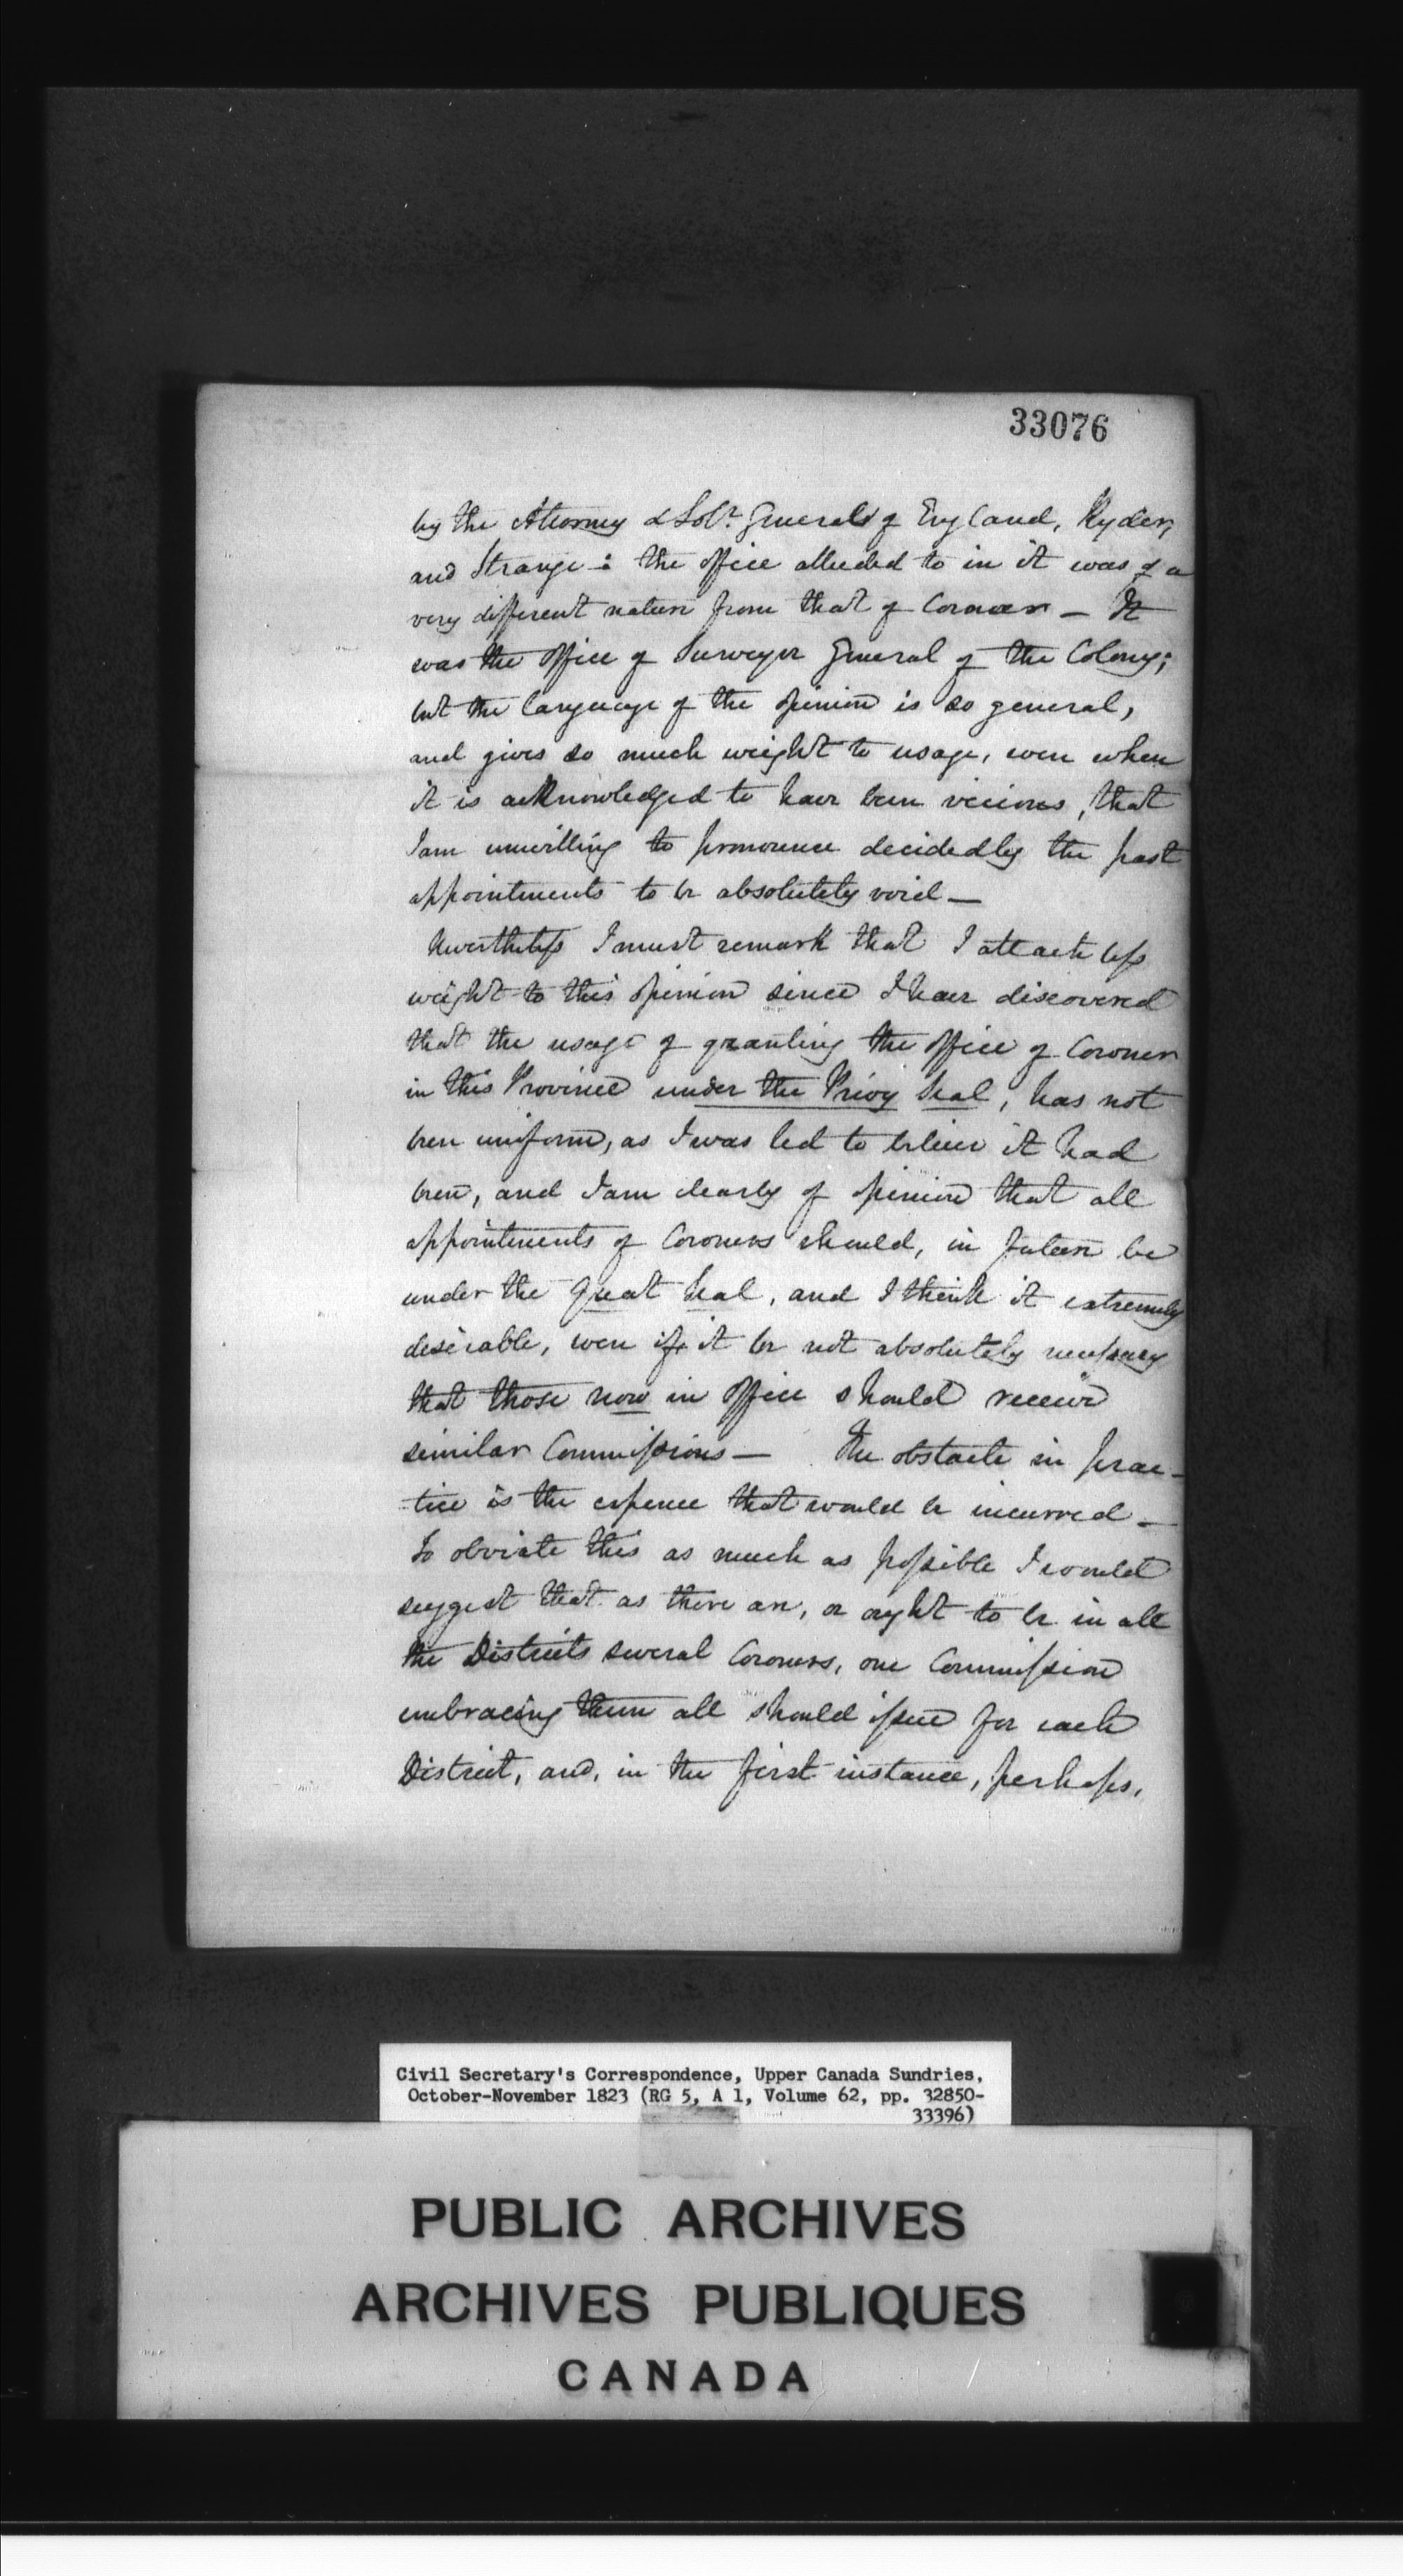 33076
by the Attorney & Solr. Generals of England, Ryder,
and Strange: the office alluded to in it was of a
very different nature from that of Coroner — It
was the office of Surveyor General of the Colony;
but the language of the opinion is so general,
and gives so much weight to usage, even when
it is acknowledged to have been vicious, that
I am unwilling to pronounce decidedly the past
appointments to be absolutely void —
Nevertheless I must remark that I attach less
weight to this opinion since I have discovered
that the usage of granting the office of Coroner
in this Province under the Privy Seal, has not
been uniform, as I was led to believe it had
been, and I am clearly of opinion that all
appointments of Coroners should, in future be
under the Great Seal, and I think it extremely
desirable, even if it be not absolutely necessary
that those now in office should receive
similar Commissions — The obstacle in prac-
tice is the expence that would be incurred —
To obviate this as much as possible I would
suggest that as there are, or ought to be in all
the Districts several Coroners, one Commission
embracing them all should issue for each
District, and, in the first instance, perhaps,
Civil Secretary's Correspondence, Upper Canada Sundries,
October-November 1823 (RG 5, A 1, Volume 62, pp. 32850-
33396)
PUBLIC ARCHIVES
ARCHIVES PUBLIQUES
CANADA